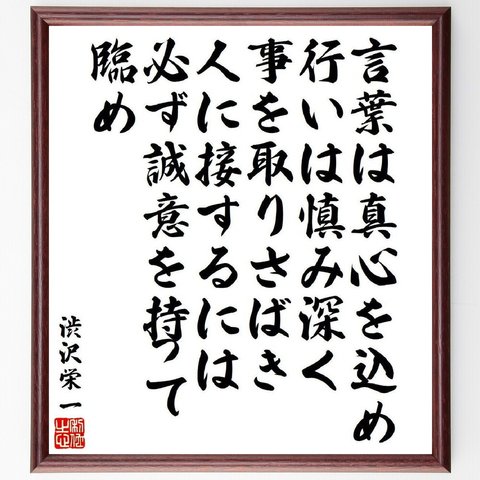 言葉は真心を込め
行いは慎み深く
事を取りさばき
人に接するには
必ず誠意を持って
臨め
渋沢栄一